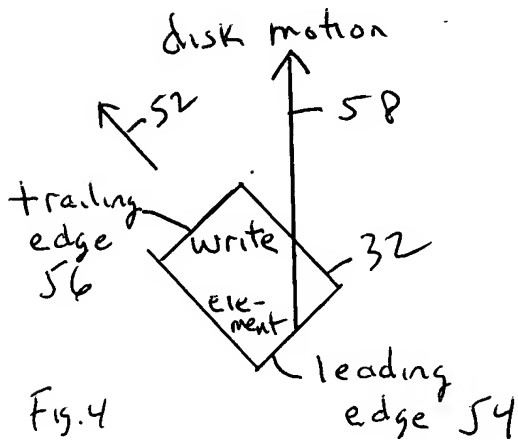 disk motion
52
58
trailing
edge
56
write
32
Ele-
ment
leading
edge 54
Fig. 4